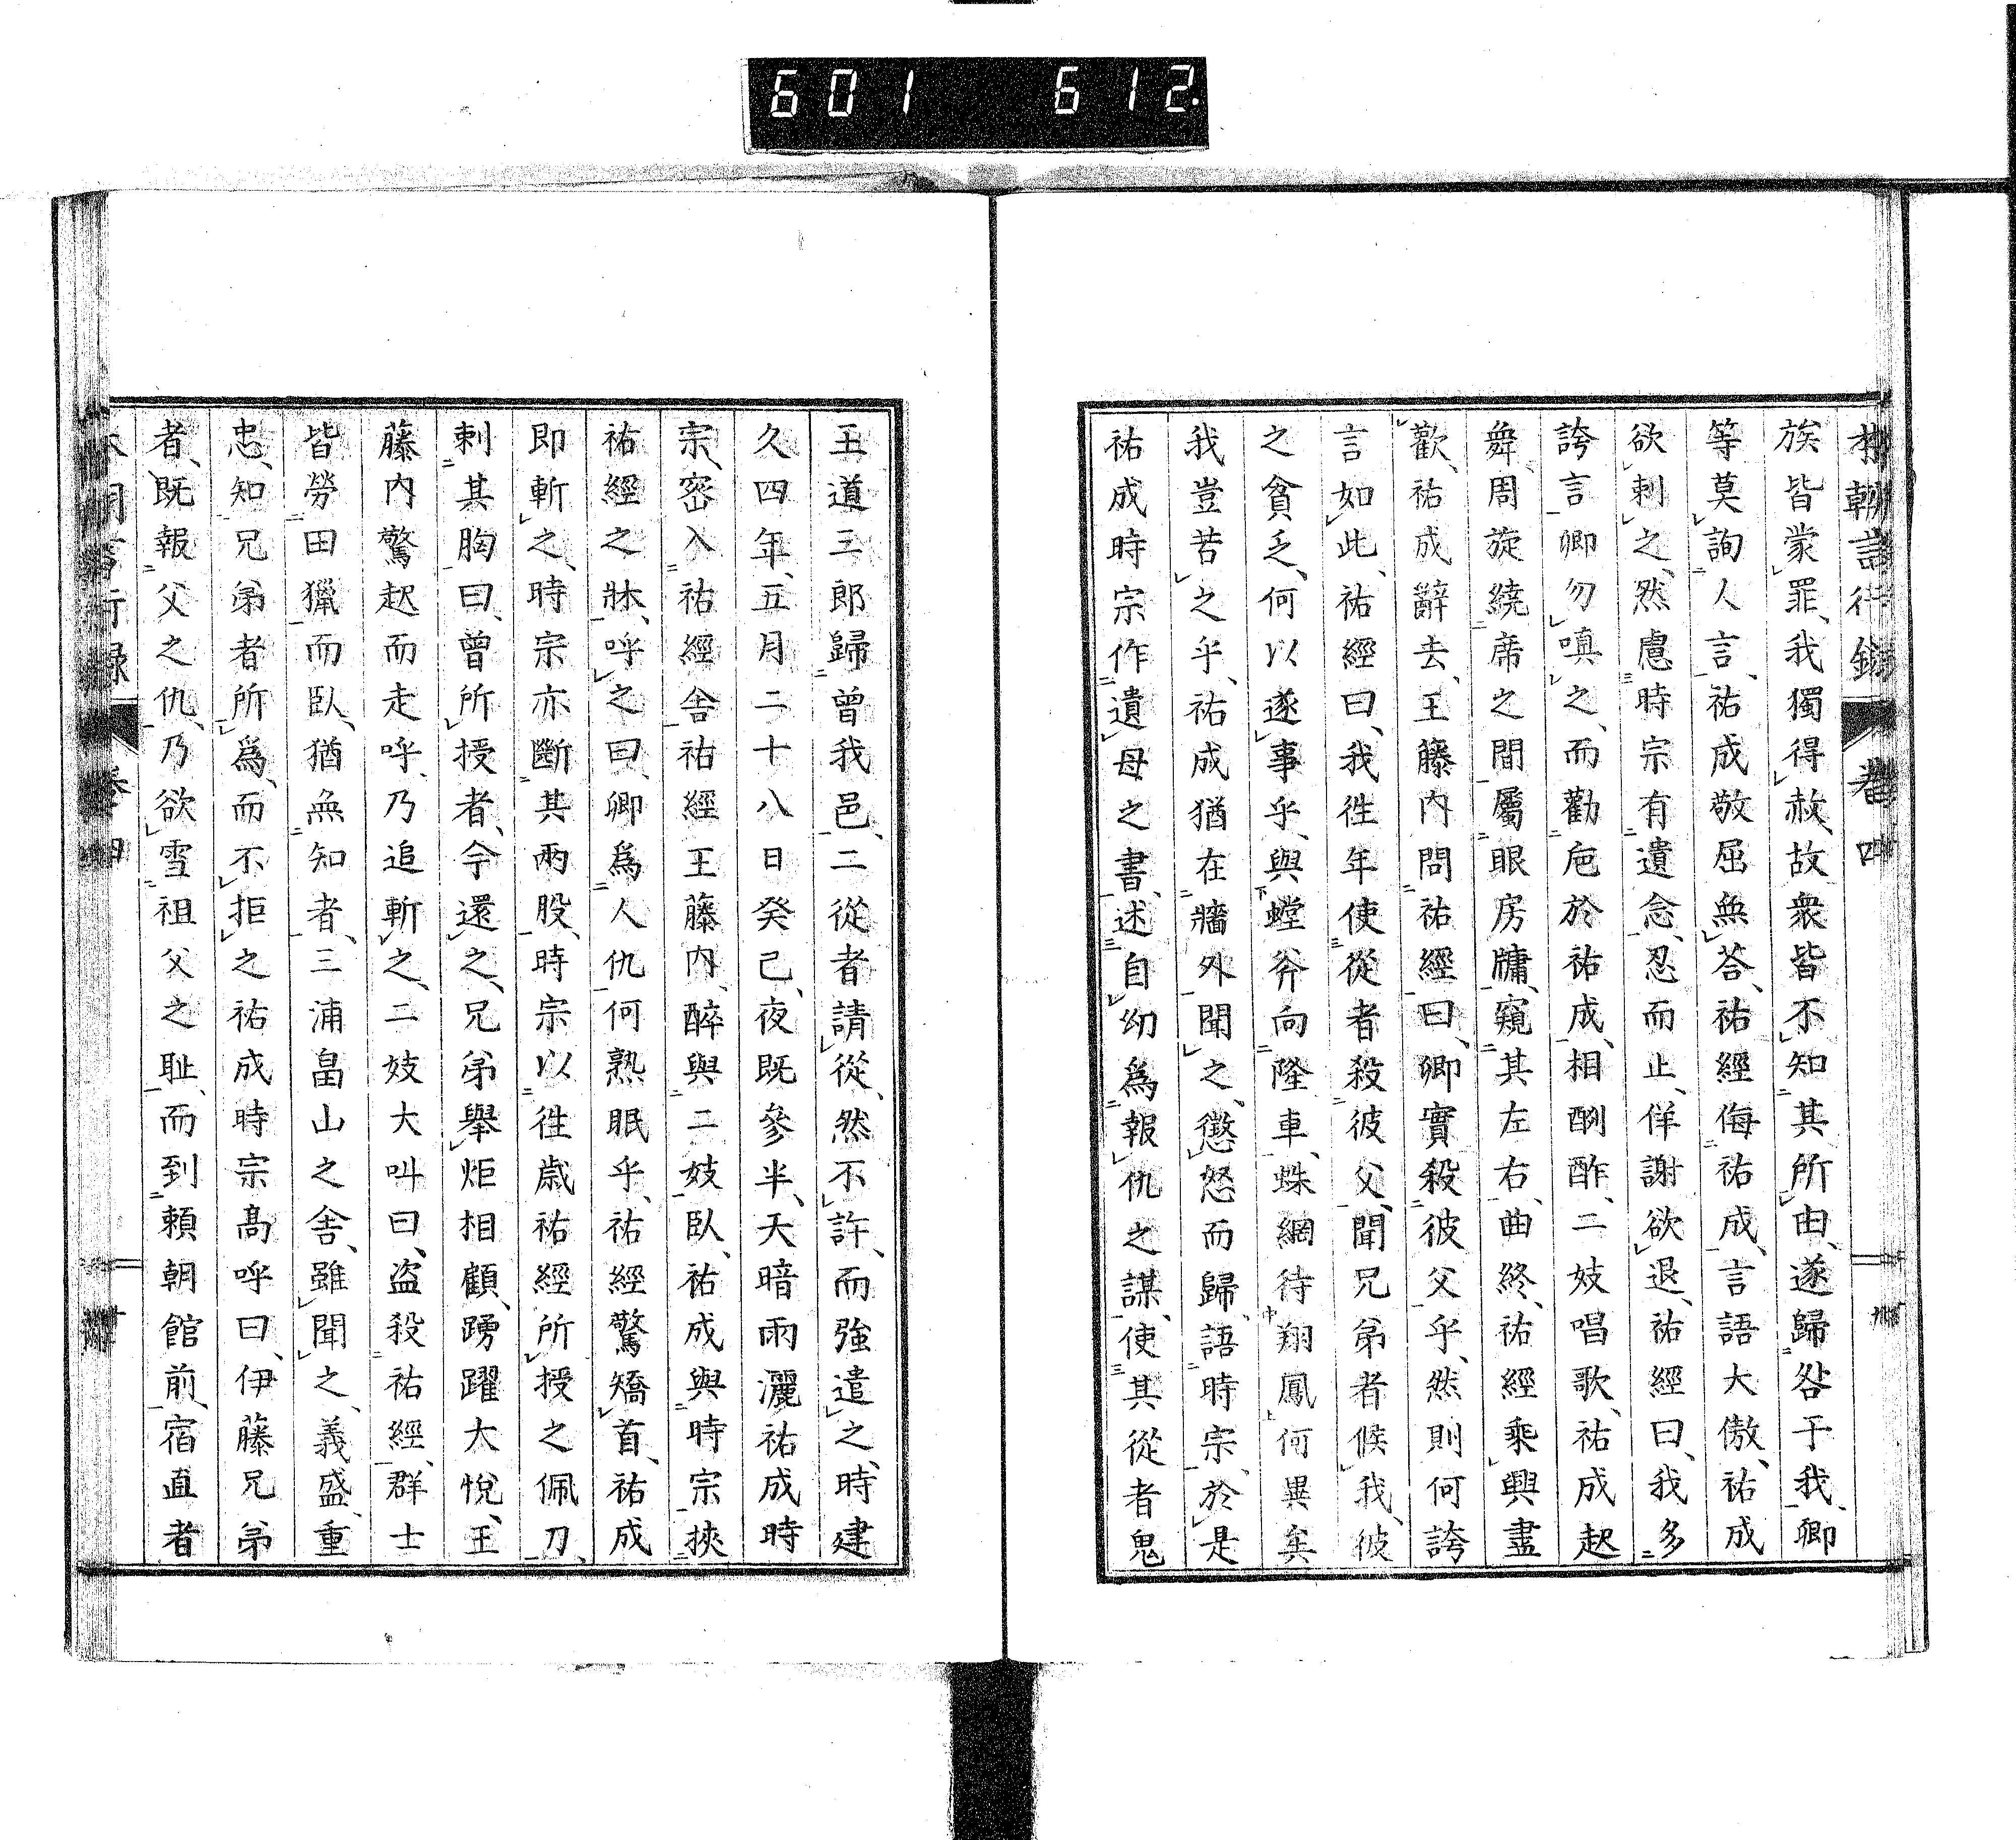 601 612.
族皆蒙罪、我獨得赦、故衆皆不知其所由、遂歸咎于我、卿
等莫詢人言、祐成敬屈無荅、祐經侮祐成、言語大傲、祐成
欲刺之、然慮時宗有遺念、忍而止、佯謝欲退、祐經曰、我多
誇言、卿勿嗔之、而勸巵於祐成、相酬酢、二妓唱歌、祐成起
舞、周旋繞席之間、屬眼房牗、窺其左右、曲終、祐經乘興盡
歡、祐成辭去、王藤內問祐經曰、卿實殺彼父乎、然則何誇
言如此、祐經曰、我徃年使從者殺彼父、聞兄弟者候我、彼
之貧乏、何以遂事乎、與螳斧向隆車、蛛網待翔鳳何異矣
我豈苦之乎、祐成猶在牆外聞之、懲怒而歸、語時宗、於是
祐成時宗作遺母之書、述自幼爲報仇之謀、使其從者鬼
王道三郎歸曾我邑、二從者請從、然不許、而強遣之、時建
久四年、五月二十八日癸己、夜既參半、天暗雨灑祐成時
宗、密入祐經舎、祐經王藤內、醉與二妓臥、祐成與時宗挾
祐經之牀、呼之曰、卿爲人仇何熟眠乎、祐經驚矯首、祐成
即斬之、時宗亦斷其兩股、時宗以徃歳祐經所授之佩刀、
刺其胸曰、曾所授者、今還之、兄弟舉炬相顧、踴躍大悅、王
藤內驚起而走呼、乃追斬之、二妓大叫曰、盗殺祐經、群士
皆勞田獵而臥、猶無知者、三浦畠山之舎、雖聞之、義盛、重
忠、知兄弟者所爲、而不拒之祐成時宗高呼曰、伊藤兄弟
者、既報父之仇、乃欲雪祖父之耻、而到頼朝館前、宿直者